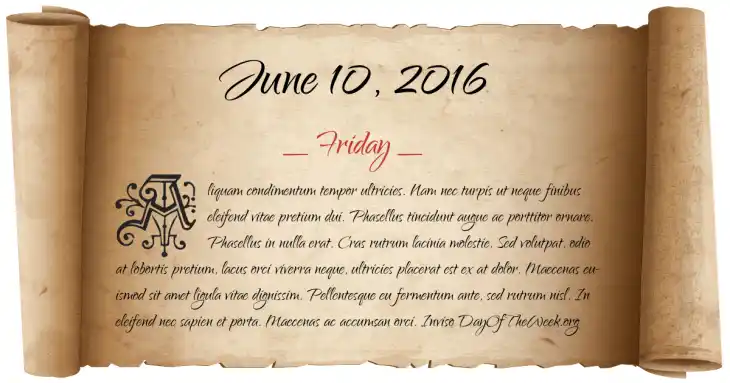 June 10, 2016
_ Friday _
Aliquam condimentum tempor ultricies. Nam nec turpis ut neque finibus
eleifend vitae pretium dui. Phasellus tincidunt augue ac porttitor ornare.
Phasellus in nulla erat. Cras rutrum lacinia molestie. Sed volutpat, odio
at lobortis pretium, lacus orci viverra neque, ultricies placerat est ex at dolor. Maecenas eu-
ismod sit amet ligula vitae dignissim. Pellentesque eu fermentum ante, sed rutrum nisl. In
eleifend nec sapien et porta. Maecenas ac accumsan orci. Inviso DayOfTheWeek.org